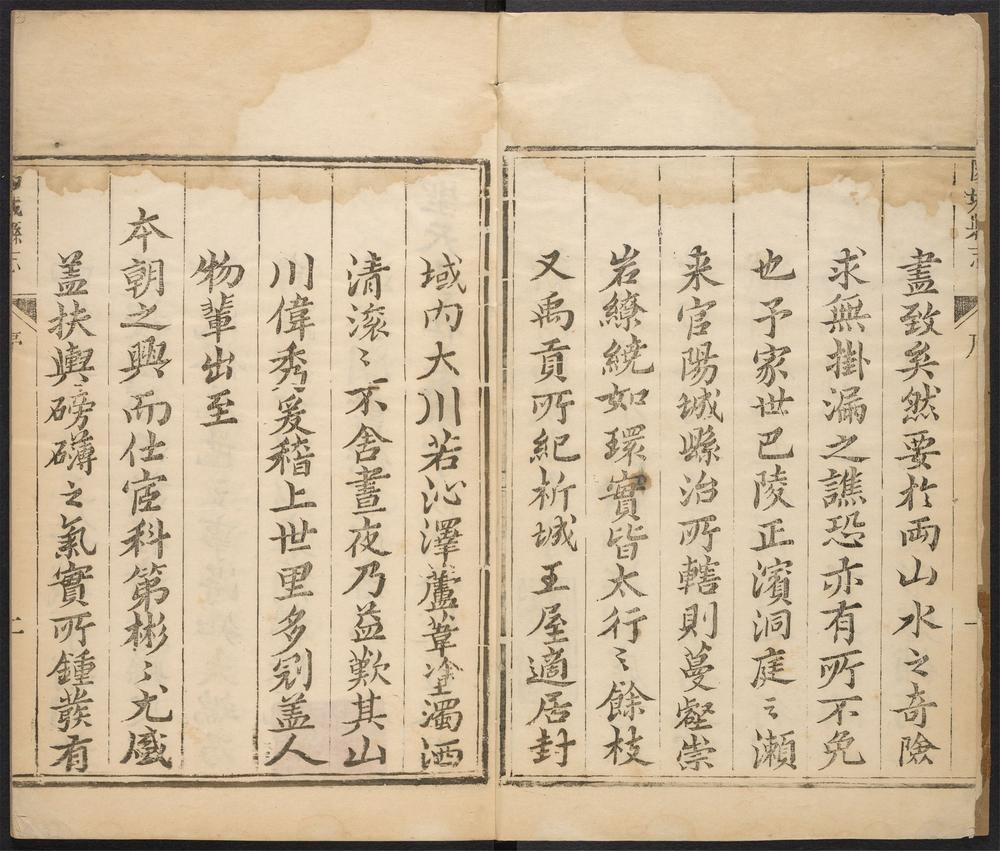 盡致矣然要於両山水之奇險
求無掛漏之譙恐亦有所不免
也予家世巴陵正濱洞庭之瀬
来官陽城縣治所轄則蔓壑崇
岩繚繞如環實皆太行〻餘枝
又禹貢所紀析城王屋適居封
域内大川若沁澤蘆葦塗濁洒
清滚〻不舍晝夜乃益歎其山
川偉秀爰稽上世里多冠盖人
物輩出至
本朝之興而仕宦科第彬〻尤盛
盖扶輿磅礴之氣實所鍾發有
城縣志
二